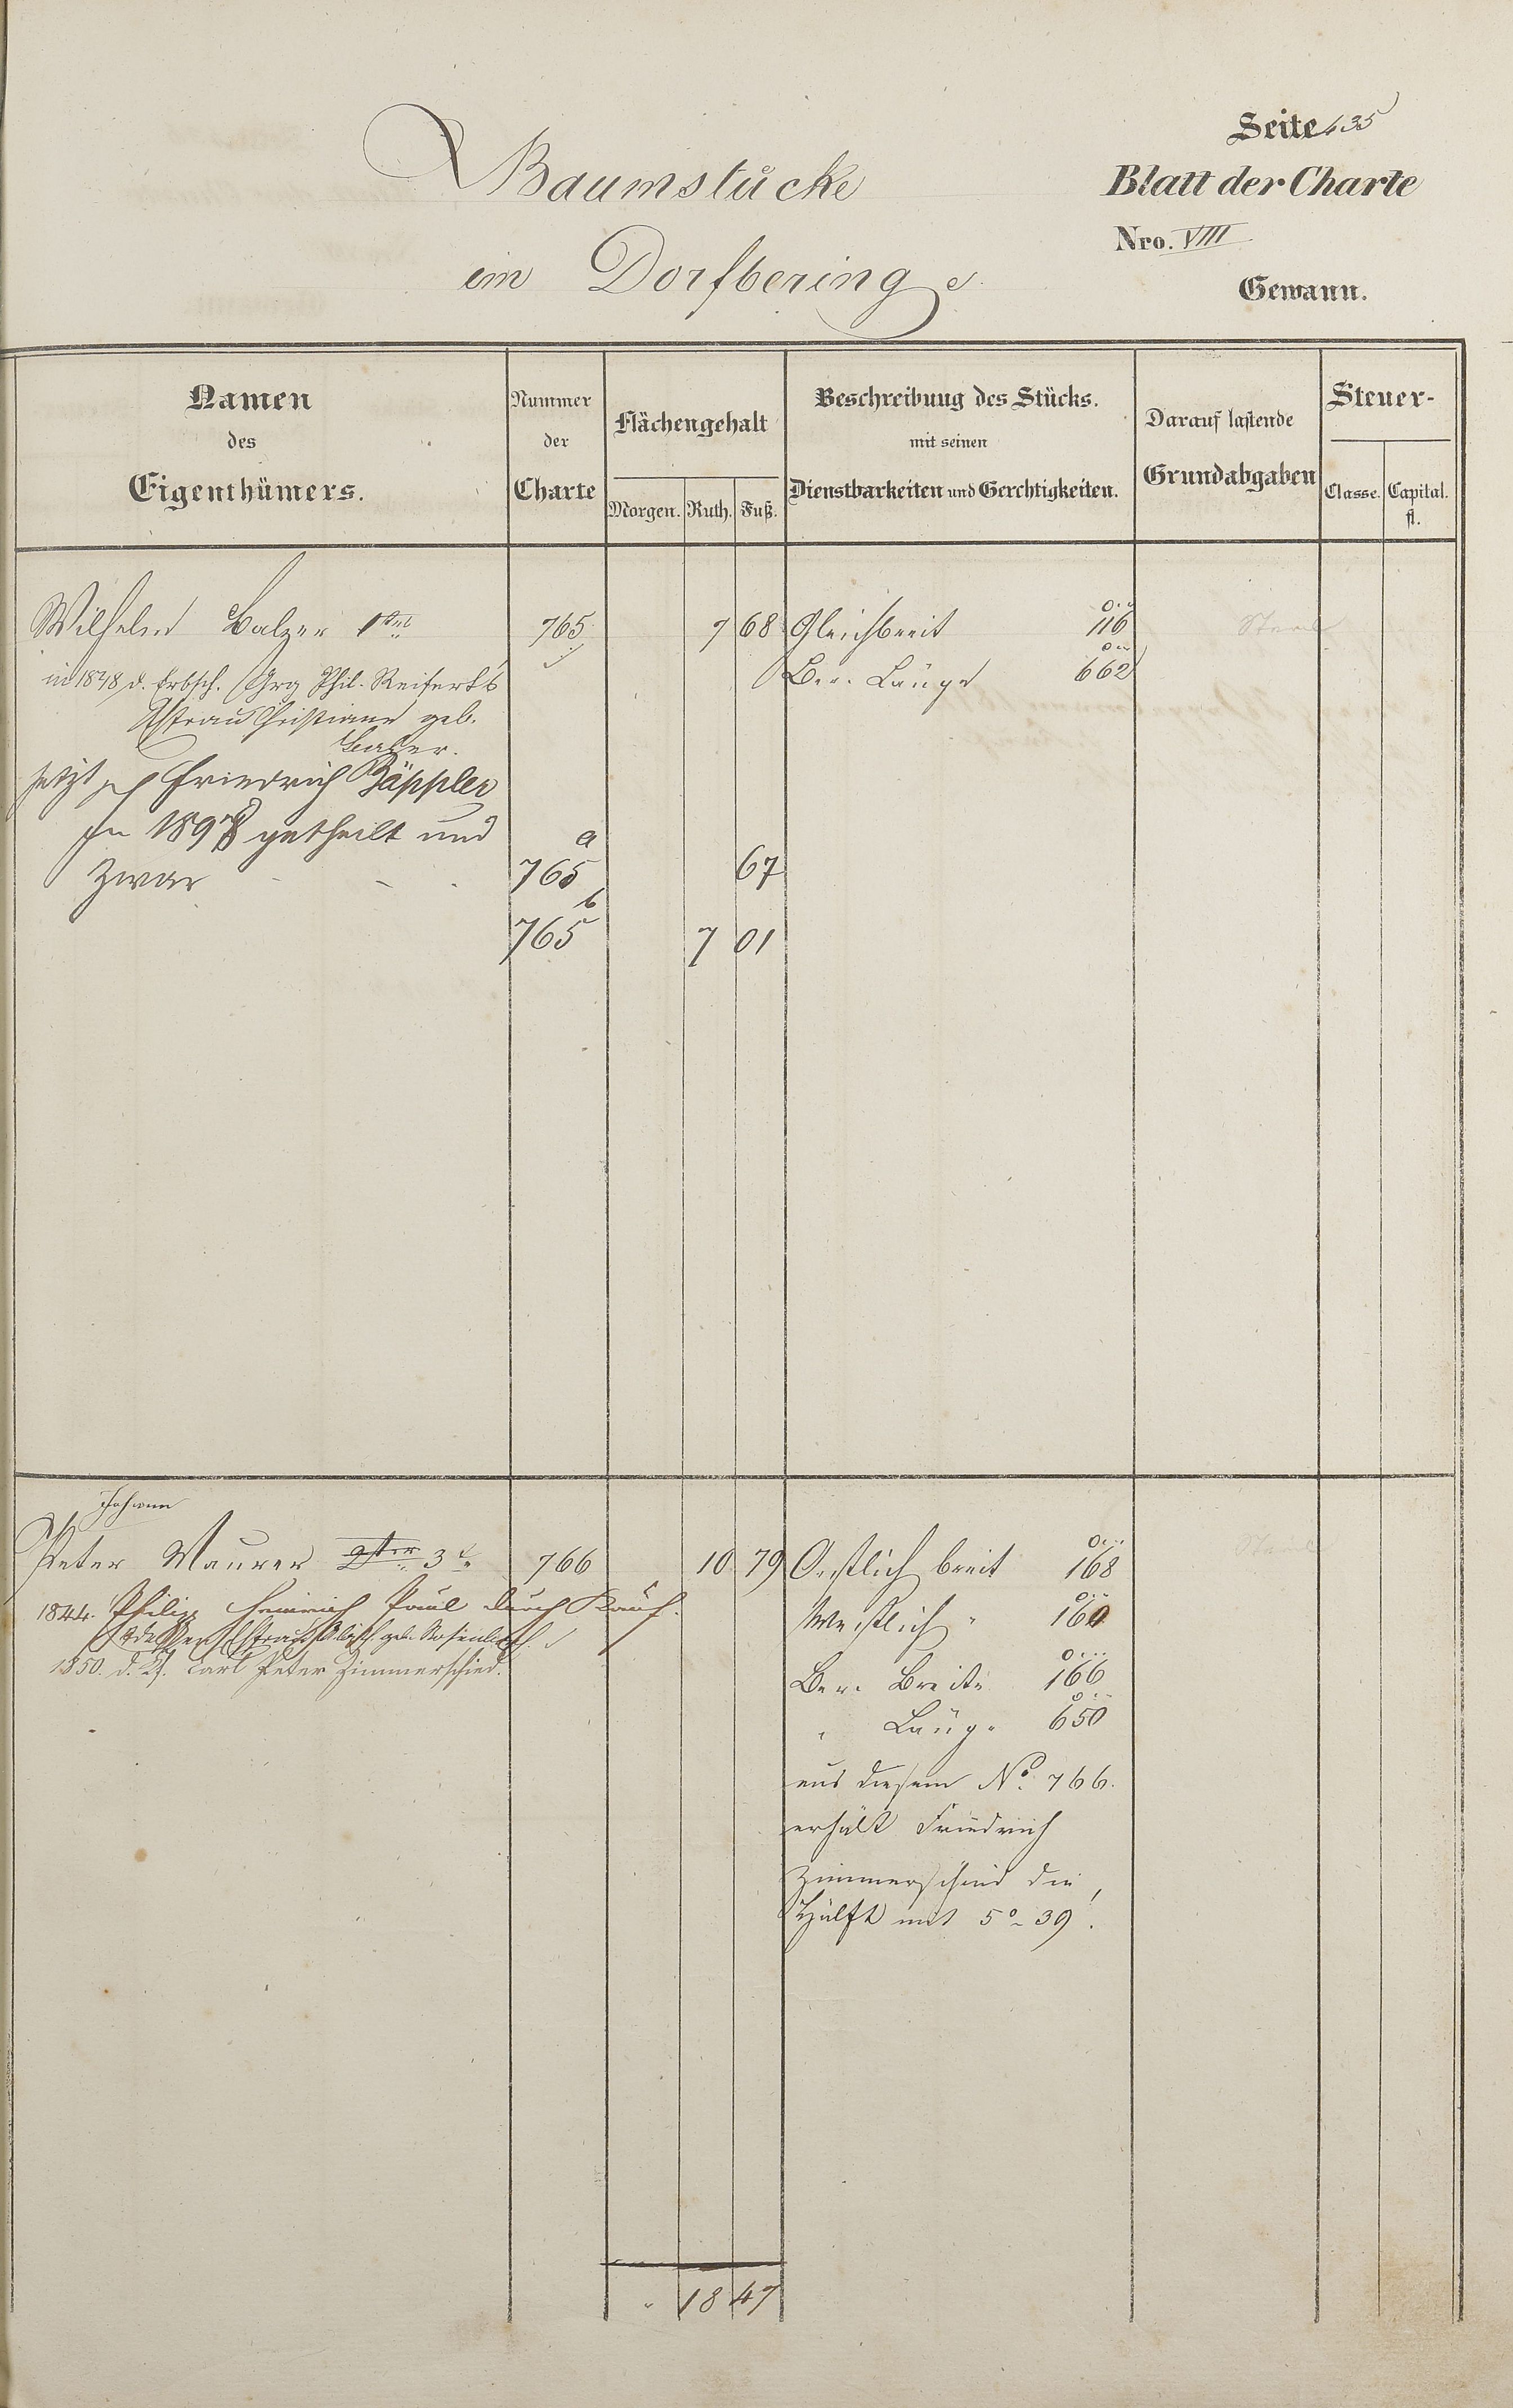 Seite 435
Baumstücke
Blatt der Charte
Nro. VIII
im Dorfbering
Gewann.
Namen
des
Eigenthümers.
Nummer
der
Charte
Flächengehalt
Morgen. Ruth. Fuß.
Beschreibung des Stücks.
mit seinen
Dienstbarkeiten und Gerechtigkeiten.
Darauf lastende
Grundabgaben
Steuer-
Classe. Capital.
fl.
Wilhelm Balzer 1ter 765 7 68 Gleichbreit 116
in 1848 d. Erbsch. Grg Phil. Reifert's Ber. Länge 662
Ehfrau Christiane geb.
Balzer.
jetzt Friedrich Bäppler
In 1898 getheilt und
zwar 765 a 67
765 b 7 01
Johann
Peter Maurer 2ter 3r 766 10 79 Oestlich breit 168
1844. Philipp Heinrich Paul durch Kauf. Westlich " 160
1850. d. Kf. Carl Peter Zimmerschied.
Ber. Breite 166
" Länge 650
aus diesem No. 766.
erhält Friedrich
Zimmerschied die
Hälfte mit 5° 39'.
" 18 47